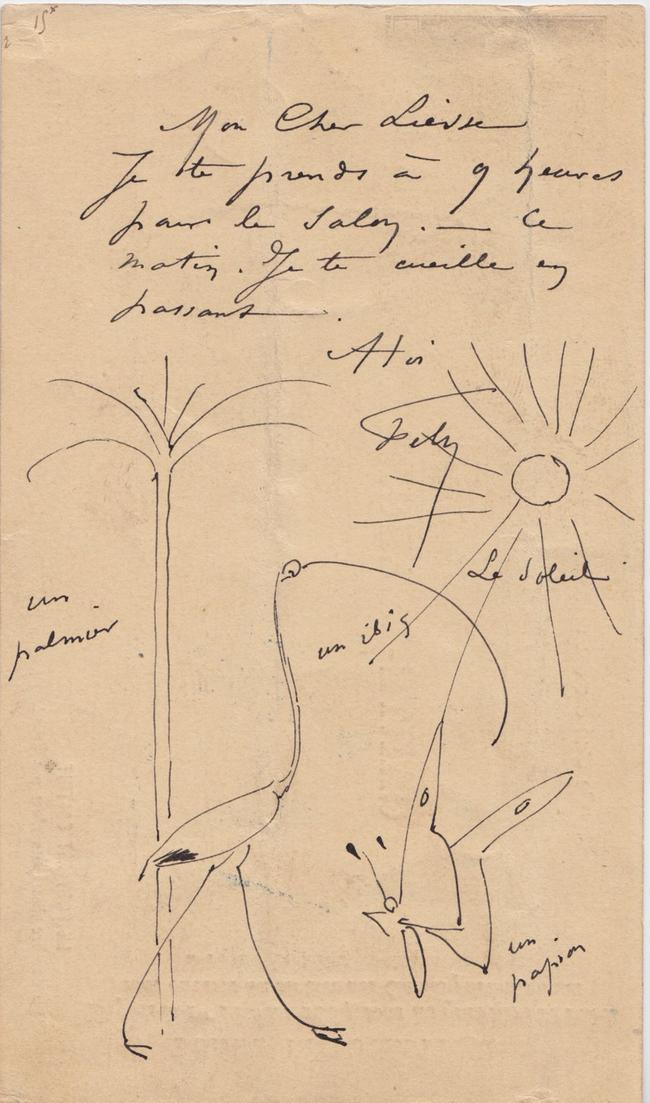 15
Mon Cher Lièvre
Je te prends à 9 heures
pour le Salon. — Ce
matin. Je te cueille en
passant.
A toi
Le Soleil
un ibis
un
palmier
un
papion